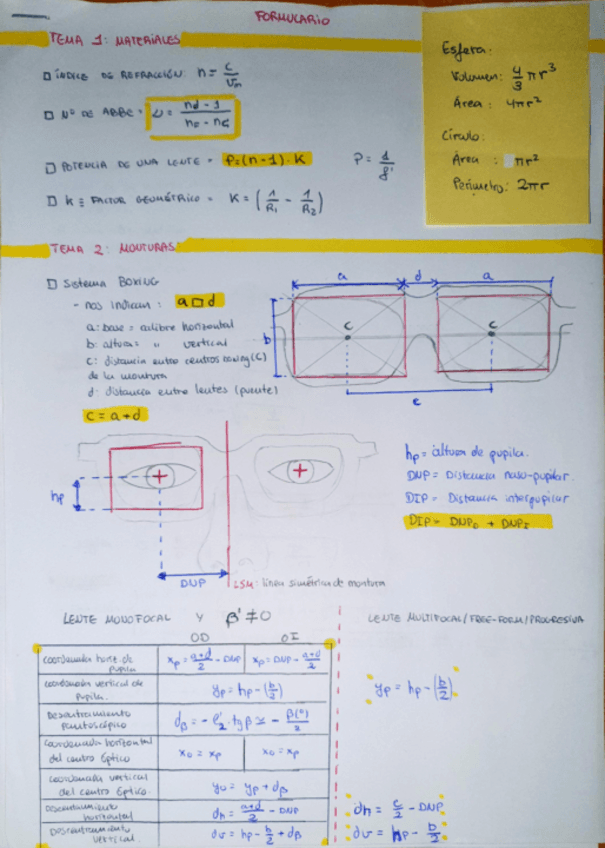 FORMULARIO
TEMA 1: MATERIALES
□ ÍNDICE DE REFRACCIÓN: n = c/vm
□ Nº DE ABBE = ν = (nd - 1)/(nF - nC)
□ POTENCIA DE UNA LENTE = P = (n-1)·K P = 1/f'
□ K ≡ FACTOR GEOMÉTRICO = K = (1/R1 - 1/R2)
Esfera:
Volumen: 4/3 πr³
Área: 4πr²
Círculo:
Área: πr²
Perímetro: 2πr
TEMA 2: MONTURAS
□ Sistema BOXING
- nos indican: a□d
a: base = calibre horizontal
b: altura = " vertical
c: distancia entre centros boxing (C)
de la montura
d: distancia entre lentes (puente)
c = a + d
a d a
b
C C
c
hp
DNP
LSM: línea simétrica de montura
hp = altura de pupila.
DNP = Distancia naso-pupilar.
DIP = Distancia interpupilar
DIP = DNPD + DNPI
LENTE MONOFOCAL Y β' ≠ 0
OD OI
coordenada horiz. de pupila xp = (a+d)/2 - DNP xp = DNP - (a+d)/2
coordenada vertical de pupila. yp = hp - (b/2)
Descentramiento pantoscópico dβ = - l'2 · tg β ≃ - β(º)/2
Coordenada horizontal del centro óptico xo = xp xo = xp
Coordenada vertical del centro óptico. yo = yp + dβ
Descentramiento horizontal dh = (a+d)/2 - DNP
Descentramiento vertical dv = hp - b/2 + dβ
LENTE MULTIFOCAL/FREE-FORM/PROGRESIVA
yp = hp - (b/2)
dh = c/2 - DNP
dv = hp - b/2